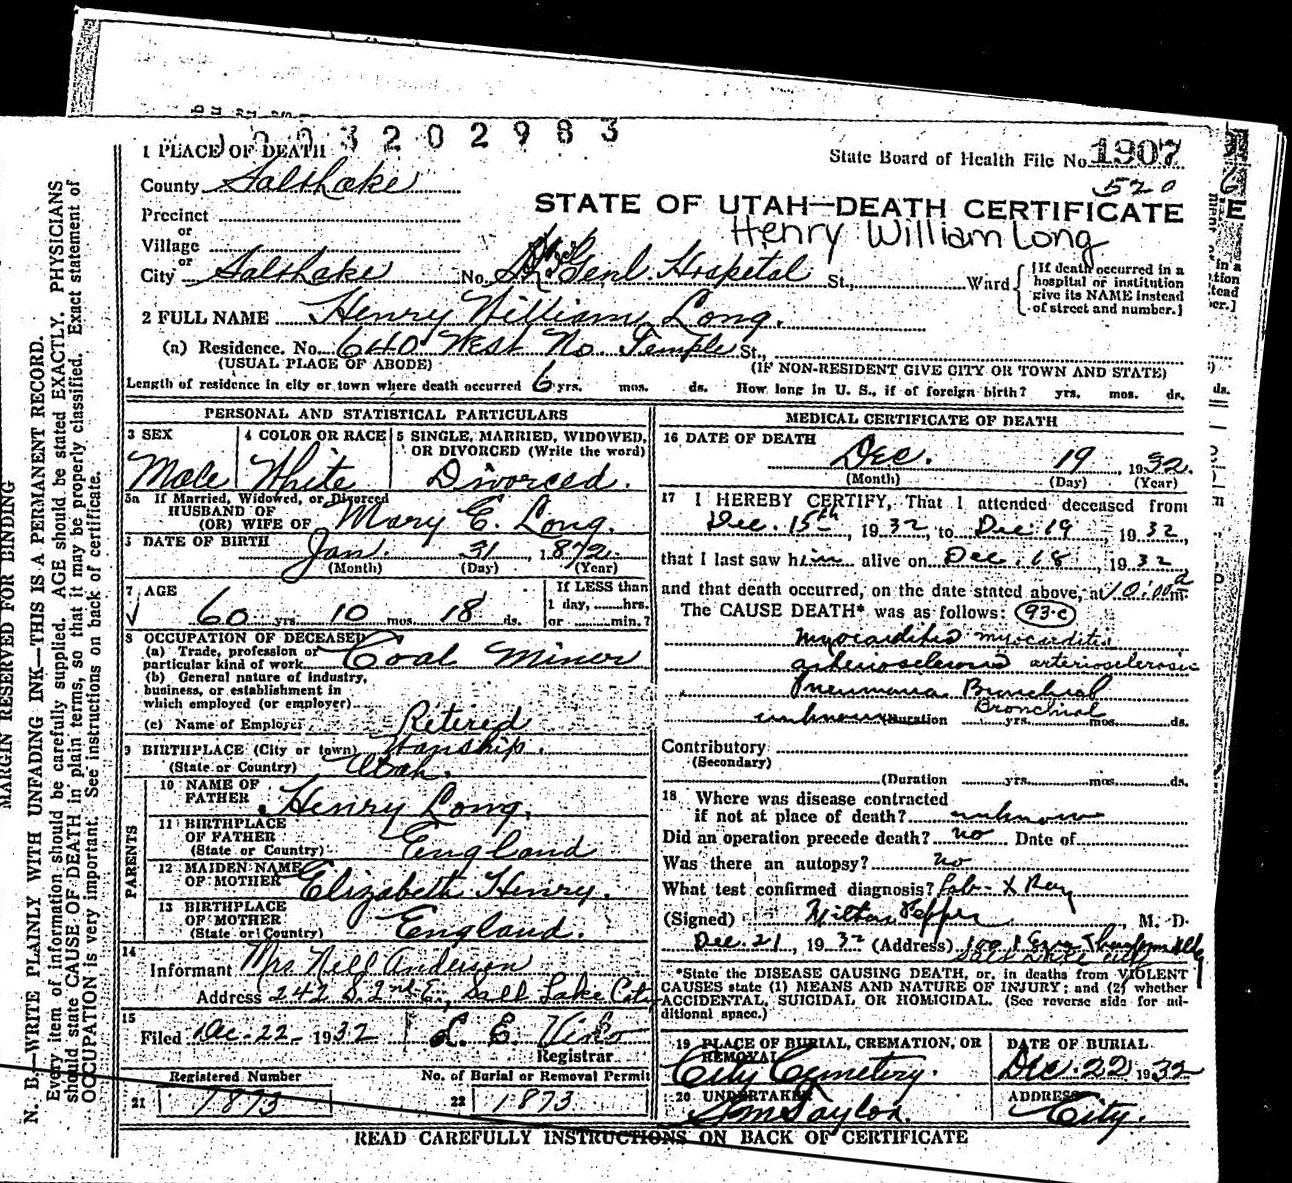 3 2 0 2 9 8 3
1 PLACE OF DEATH
State Board of Health File No. 1907
County Salt Lake
520
STATE OF UTAH—DEATH CERTIFICATE
Precinct
or
Henry William Long
Village
or
City Salt Lake No. Genl. Hospital St., Ward
[If death occurred in a
hospital or institution
give its NAME instead
of street and number.]
2 FULL NAME Henry William Long.
(a) Residence. No. 640 West No. Temple St.,
(USUAL PLACE OF ABODE) (IF NON-RESIDENT GIVE CITY OR TOWN AND STATE)
Length of residence in city or town where death occurred 6 yrs. mos. ds. How long in U. S., if of foreign birth? yrs. mos. ds.
PERSONAL AND STATISTICAL PARTICULARS
3 SEX
Male
4 COLOR OR RACE
White
5 SINGLE, MARRIED, WIDOWED,
OR DIVORCED (Write the word)
Divorced.
5a If Married, Widowed, or Divorced
HUSBAND OF
(OR) WIFE OF Mary E. Long.
DATE OF BIRTH
Jan. 31 1872.
(Month) (Day) (Year)
7 AGE
60 yrs. 10 mos. 18 ds.
If LESS than
1 day, hrs.
or min.?
8 OCCUPATION OF DECEASED
(a) Trade, profession or
particular kind of work Coal Miner
(b) General nature of industry,
business, or establishment in
which employed (or employer)
(c) Name of Employer Retired
9 BIRTHPLACE (City or town) Wanship.
(State or Country) Utah.
PARENTS
10 NAME OF
FATHER Henry Long.
11 BIRTHPLACE
OF FATHER
(State or Country) England
12 MAIDEN NAME
OF MOTHER Elizabeth Henry.
13 BIRTHPLACE
OF MOTHER
(State or Country) England.
14
Informant Mrs Nell Anderson
Address 242 S. 2nd E., Salt Lake City
15
Filed Dec-22- 1932 L. E. Viko
Registrar
Registered Number No. of Burial or Removal Permit
21 1873 22 1873
MEDICAL CERTIFICATE OF DEATH
16 DATE OF DEATH
Dec. 19, 1932.
(Month) (Day) (Year)
17 I HEREBY CERTIFY, That I attended deceased from
Dec. 15th, 1932, to Dec. 19, 1932,
that I last saw him alive on Dec. 18, 1932,
and that death occurred, on the date stated above, at 10:00 m.
The CAUSE DEATH* was as follows: 93-c
myocarditis myocarditis
arteriosclerosis arteriosclerosis
Pneumonia Bronchial
Bronchial
unknown Duration yrs. mos. ds.
Contributory
(Secondary)
(Duration yrs. mos. ds.
18 Where was disease contracted
if not at place of death? unknown
Did an operation precede death? no Date of
Was there an autopsy? no
What test confirmed diagnosis? Lab- X Ray
(Signed) Milton Pepper M. D.
Dec. 21, 1932 (Address)
Salt Lake City
*State the DISEASE CAUSING DEATH, or, in deaths from VIOLENT
CAUSES state (1) MEANS AND NATURE OF INJURY; and (2) whether
ACCIDENTAL, SUICIDAL OR HOMICIDAL. (See reverse side for ad-
ditional space.)
19 PLACE OF BURIAL, CREMATION, OR
REMOVAL
City Cemetery.
DATE OF BURIAL
Dec. 22 1932
20 UNDERTAKER
Taylor.
ADDRESS
City.
READ CAREFULLY INSTRUCTIONS ON BACK OF CERTIFICATE
MARGIN RESERVED FOR BINDING
N. B.—WRITE PLAINLY WITH UNFADING INK—THIS IS A PERMANENT RECORD.
Every item of information should be carefully supplied. AGE should be stated EXACTLY. PHYSICIANS
should state CAUSE OF DEATH in plain terms, so that it may be properly classified. Exact statement of
OCCUPATION is very important. See instructions on back of certificate.